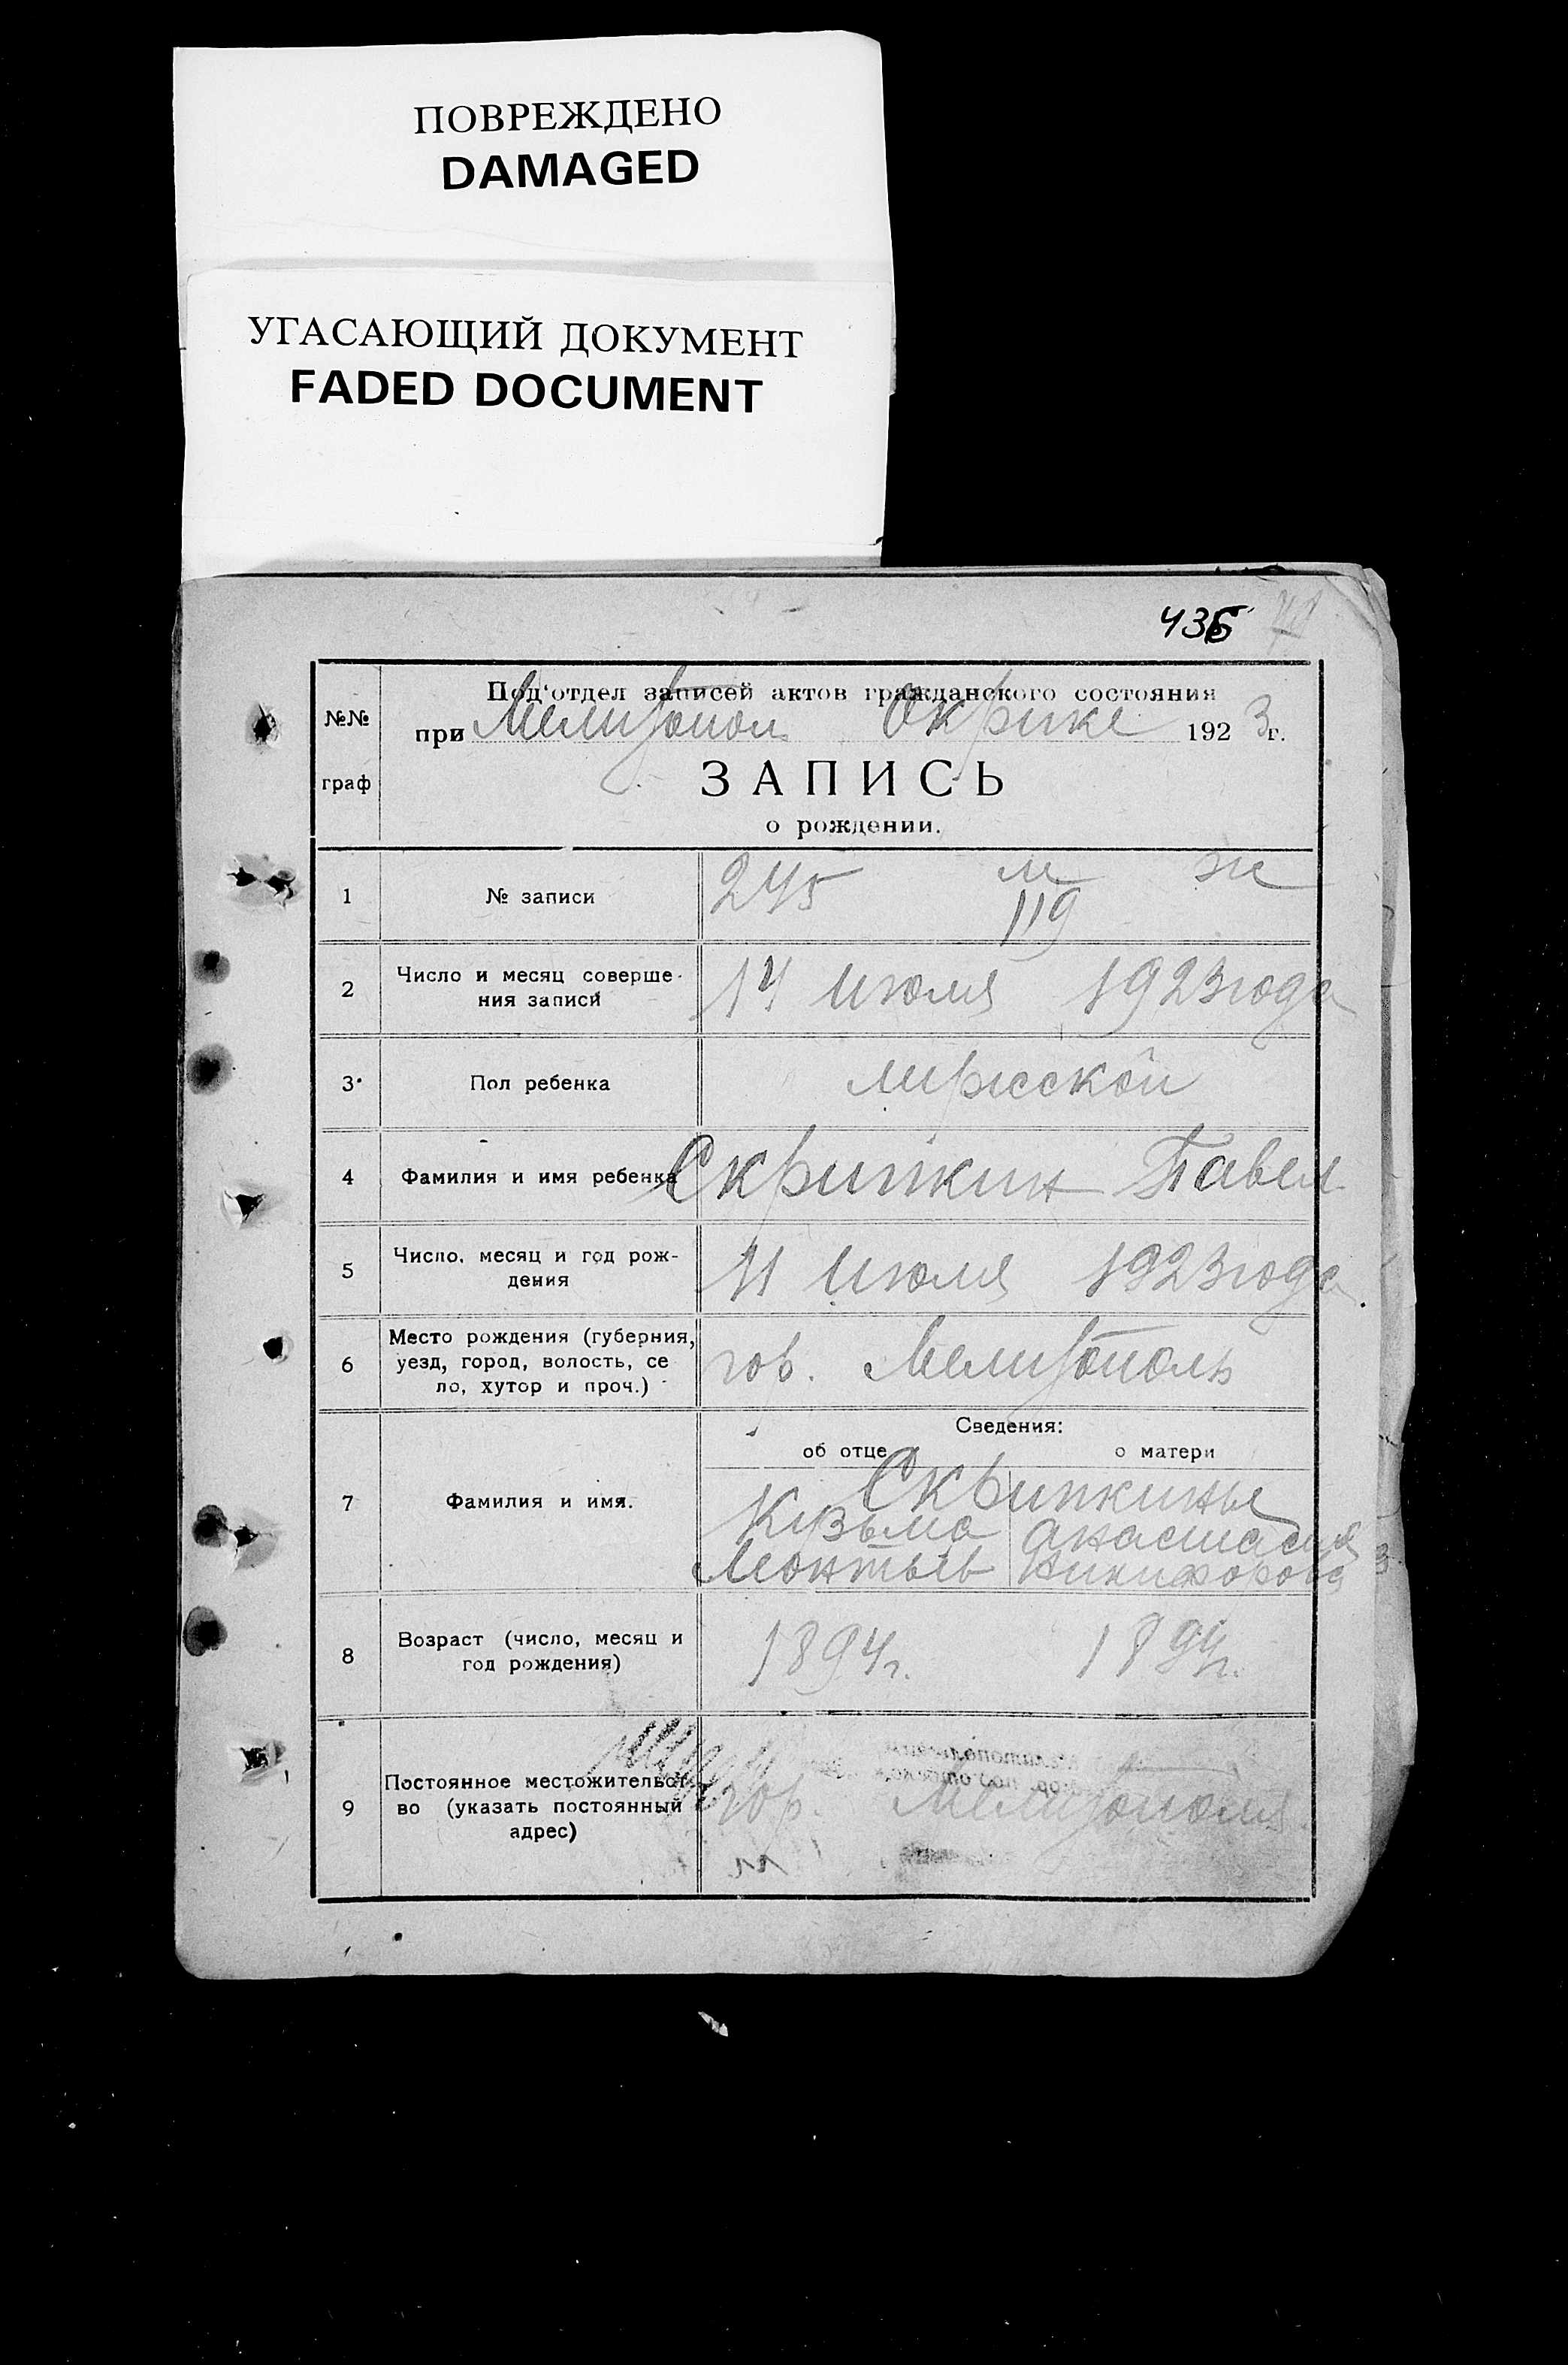 ПОВРЕЖДЕНО
DAMAGED
УГАСАЮЩИЙ ДОКУМЕНТ
FADED DOCUMENT
435
№№ граф
Под'отдел записей актов гражданского состояния
при Мелитопол Окрике 1923 г.
ЗАПИСЬ
о рождении.
1 № записи 245 м ж
119
2 Число и месяц соверше-
ния записи 14 июля 1923 года
3 Пол ребенка мужской
4 Фамилия и имя ребенка Скрипкин Павел
5 Число, месяц и год рож-
дения 11 июля 1923 года
6 Место рождения (губерния,
уезд, город, волость, се
ло, хутор и проч.) гор. Мелитополь
Сведения:
об отце о матери
7 Фамилия и имя. Скрипкины
Кузьма Анастасия
Леонтьев Никифорова
8 Возраст (число, месяц и
год рождения) 1894 г. 1894 г.
9 Постоянное местожительст-
во (указать постоянный
адрес) гор. Мелитополь